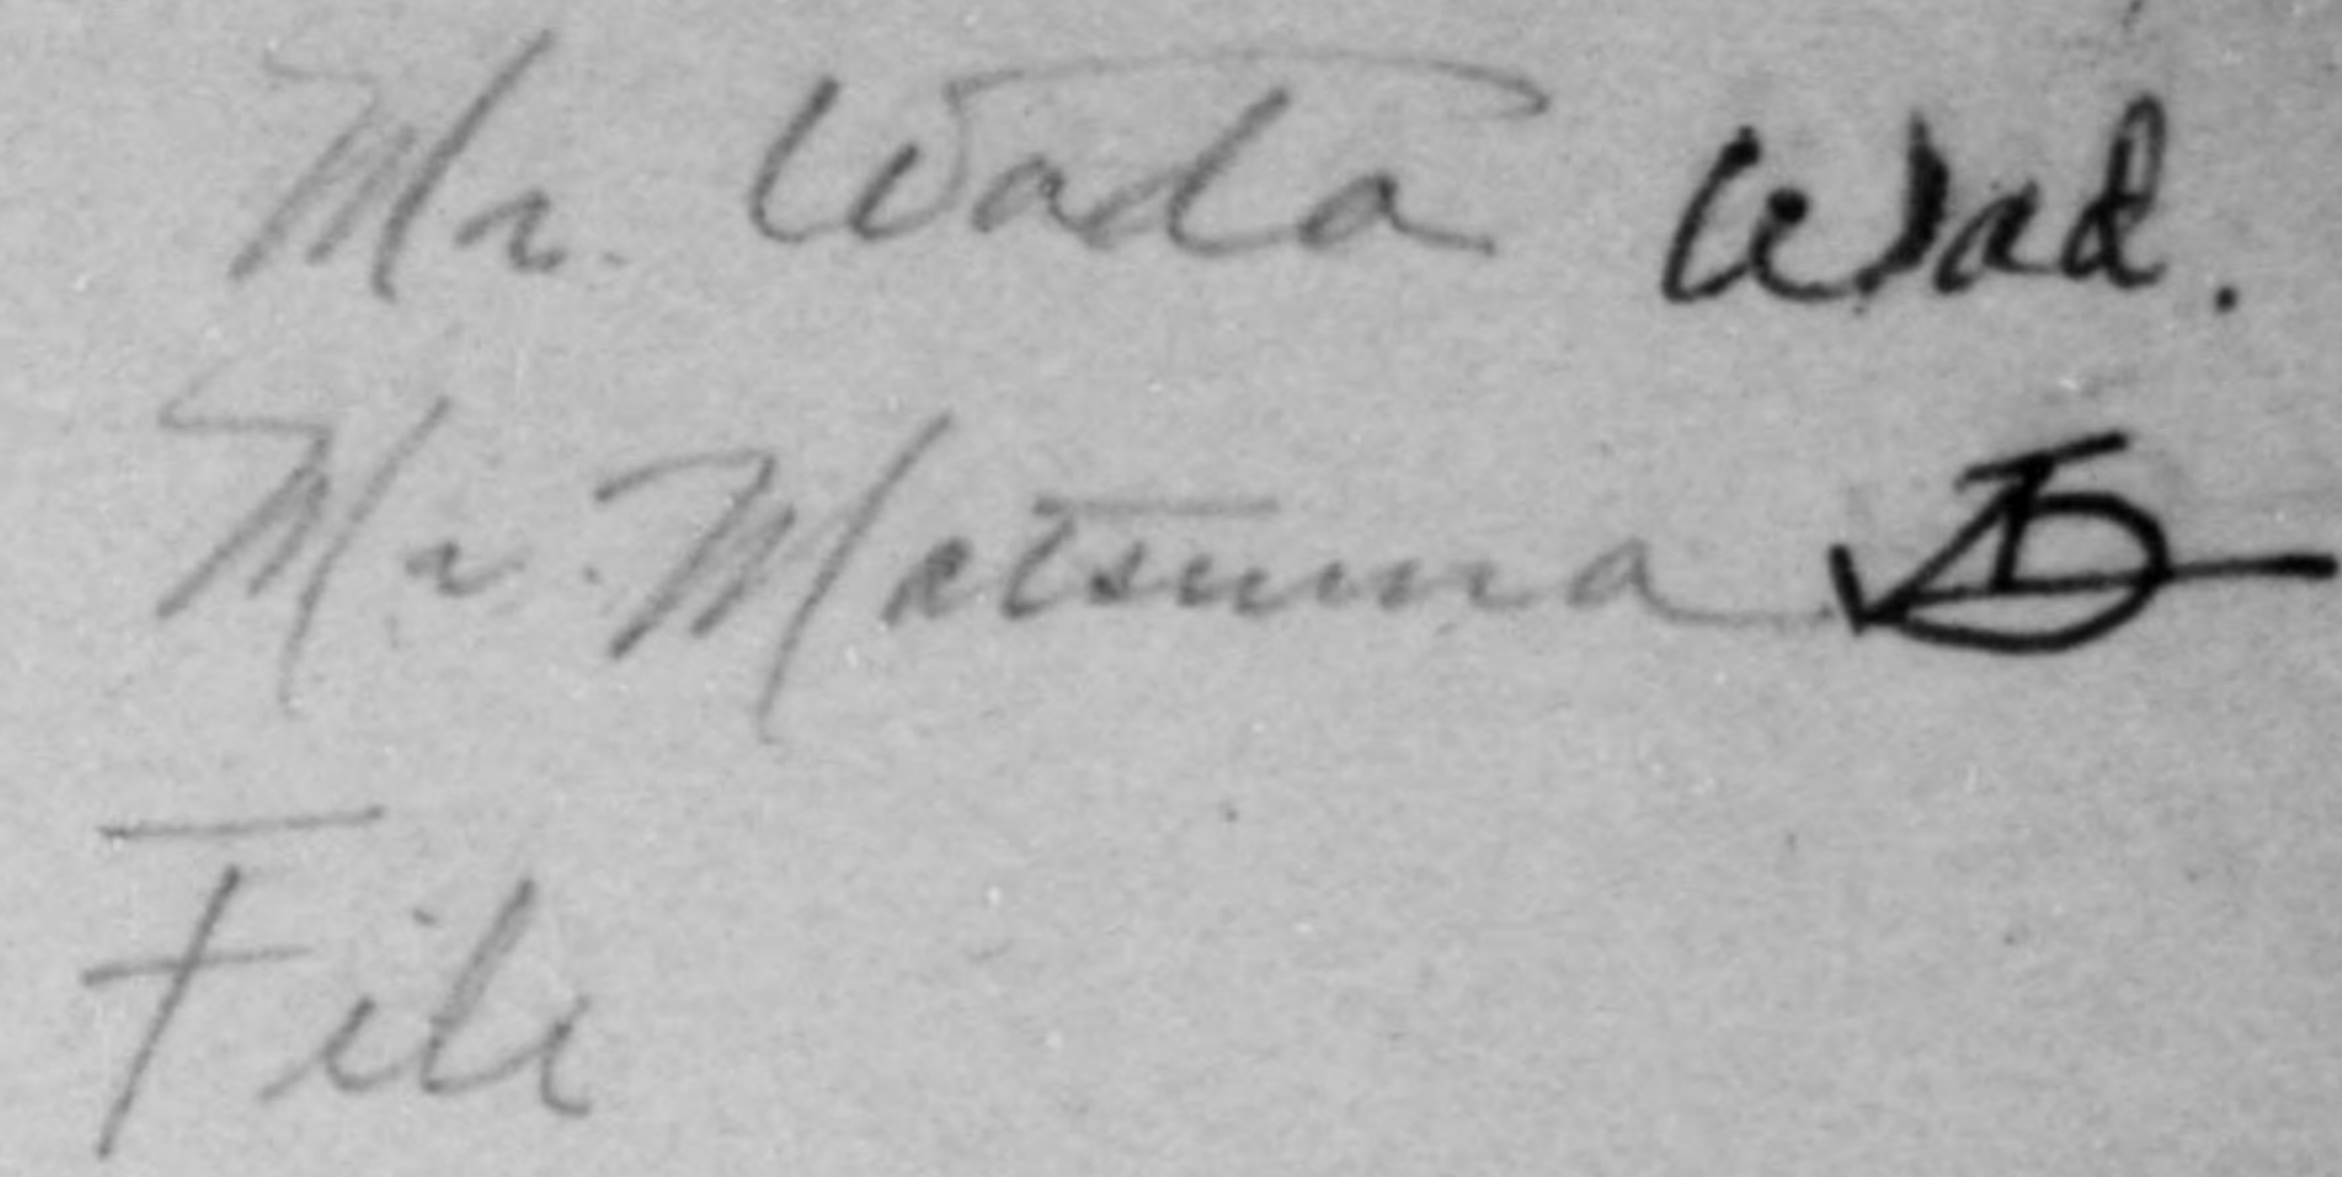 Mr. Wada Wad.
Mr. Matsuma
File